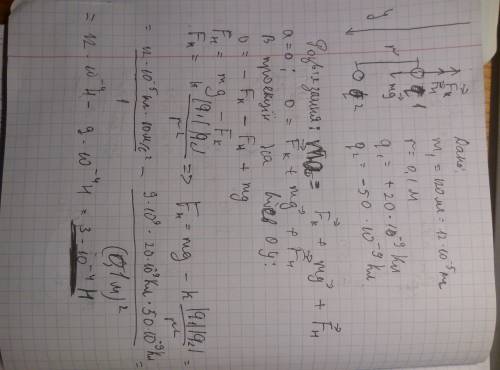 Дано:
m₁ = 120 мг = 12 · 10⁻⁵ кг
r = 0,1 м
q₁ = +20 · 10⁻⁹ Кл
q₂ = −50 · 10⁻⁹ Кл
y
r
F⃗к
F⃗н
1
mg⃗
2
Розв'язання: ma⃗ = F⃗к + mg⃗ + F⃗н
a = 0; 0 = F⃗к + mg⃗ + F⃗н
В проекції на вісь OY:
0 = −Fк − Fн + mg
Fн = mg − Fк
Fк = k |q₁||q₂| / r² => Fн = mg − k |q₁||q₂| / r² =
= 12 · 10⁻⁵ кг · 10 м/с² / 1 − 9 · 10⁹ · 20 · 10⁻⁹ Кл · 50 · 10⁻⁹ Кл / (0,1 м)² =
= 12 · 10⁻⁴ − 9 · 10⁻⁴ Н = 3 · 10⁻⁴ Н